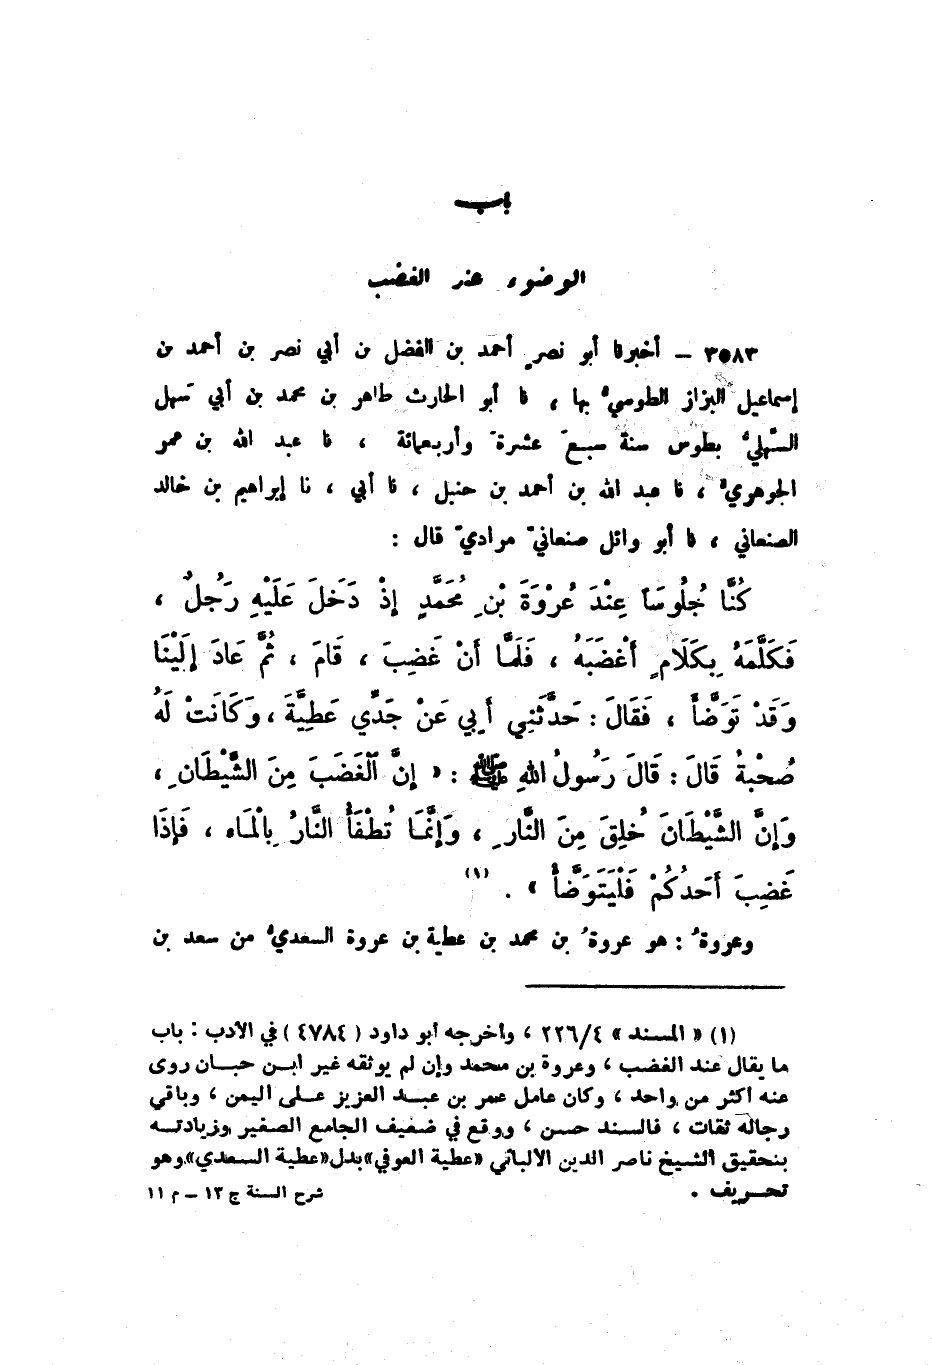 باب
الوضوء عند الغضب
٣٥٨٣ – أخبرنا أبو نصرٍ أحمد بن الفضل بن أبي نصر بن أحمد بن
إسماعيل البزاز الطوسيُّ بها ، نا أبو الحارث طاهر بن محمد بن أبي سَهل
السَّهليُّ بطوس سنة سبعَ عشرةَ وأربعمائة ، نا عبد الله بن عمر
الجوهريُّ ، نا عبد الله بن أحمد بن حنبل ، نا أبي ، نا إبراهيم بن خالد
الصنعاني ، نا أبو وائل صنعانيّ مراديّ قال :
كُنَّا جُلُوسَاً عِنْدَ عُرْوَةَ بْنِ مُحَمَّدٍ إذْ دَخَلَ عَلَيْهِ رَجُلٌ ،
فَكَلَّمَهُ بِكَلَامٍ أَغْضَبَهُ ، فَلَمَّا أَنْ غَضِبَ ، قَامَ ، ثُمَّ عَادَ إلَيْنَا
وَقَدْ تَوَضَّأَ ، فَقَالَ : حَدَّثَنِي أَبِي عَنْ جَدِّي عَطِيَّةَ ، وَكَانَتْ لَهُ
صُحْبَةٌ قَالَ : قَالَ رَسُولُ اللهِ ﷺ : « إنَّ الْغَضَبَ مِنَ الشَّيْطَانِ ،
وَإِنَّ الشَّيْطَانَ خُلِقَ مِنَ النَّارِ ، وَإِنَّمَا تُطْفَأُ النَّارُ بِالْمَاءِ ، فَإِذَا
غَضِبَ أَحَدُكُمْ فَلْيَتَوَضَّأْ » . (١)
وعروةُ : هو عروةُ بن محمد بن عطية بن عروة السعديُّ من سعد بن
(١) « المسند » ٢٢٦/٤ ، وأخرجه أبو داود ( ٤٧٨٤ ) في الأدب : باب
ما يقال عند الغضب ، وعروة بن محمد وإن لم يوثقه غير ابن حبان روى
عنه أكثر من واحد ، وكان عامل عمر بن عبد العزيز على اليمن ، وباقي
رجاله ثقات ، فالسند حسن ، ووقع في ضعيف الجامع الصغير وزيادته
بتحقيق الشيخ ناصر الدين الألباني «عطية العوفي»بدل«عطية السعدي»وهو
تحريف .
شرح السنة ج ١٣ – م ١١